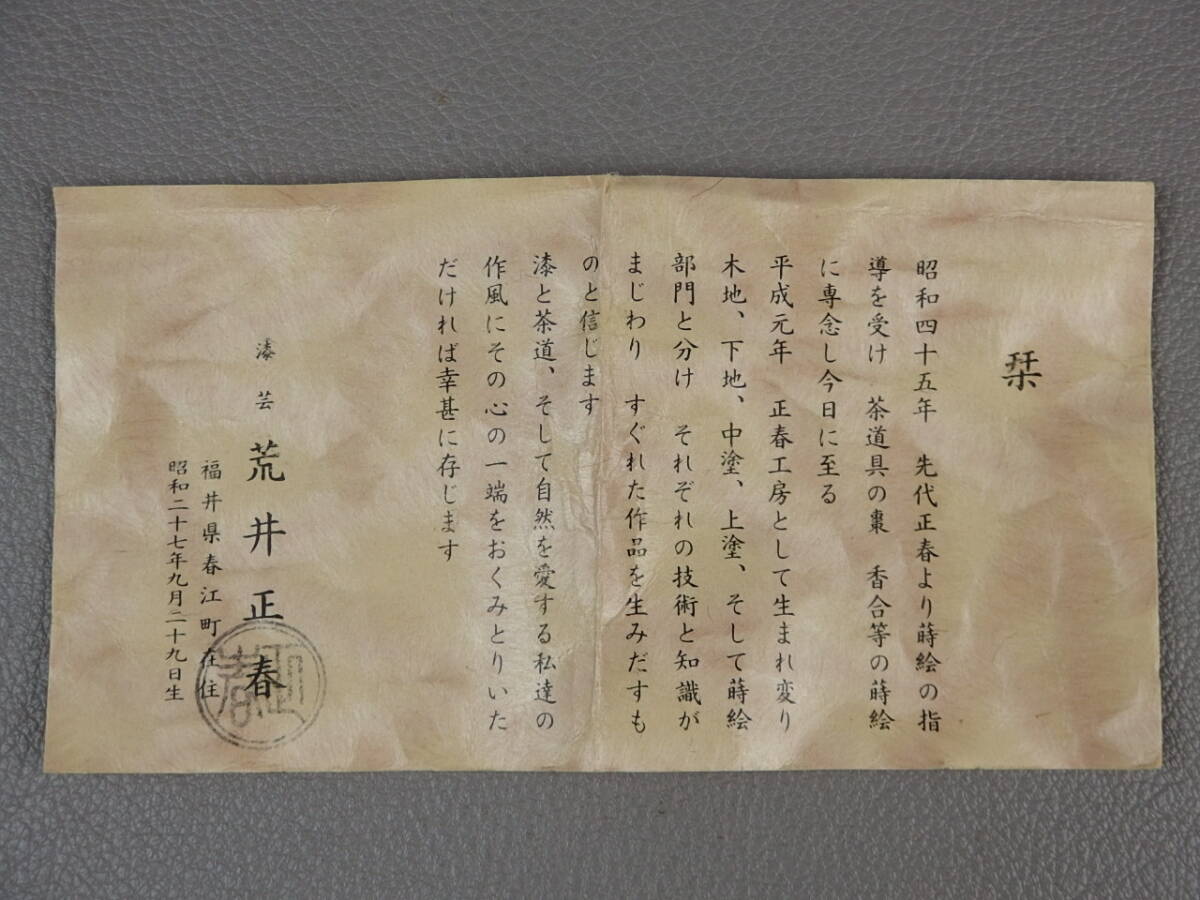 栞
昭和四十五年　先代正春より蒔絵の指
導を受け　茶道具の棗　香合等の蒔絵
に専念し今日に至る
平成元年　正春工房として生まれ変り
木地、下地、中塗、上塗、そして蒔絵
部門と分け　それぞれの技術と知識が
まじわり　すぐれた作品を生みだすも
のと信じます
漆と茶道、そして自然を愛する私達の
作風にその心の一端をおくみとりいた
だければ幸甚に存じます
漆芸　荒井正春
福井県春江町在住
昭和二十七年九月二十九日生
正春